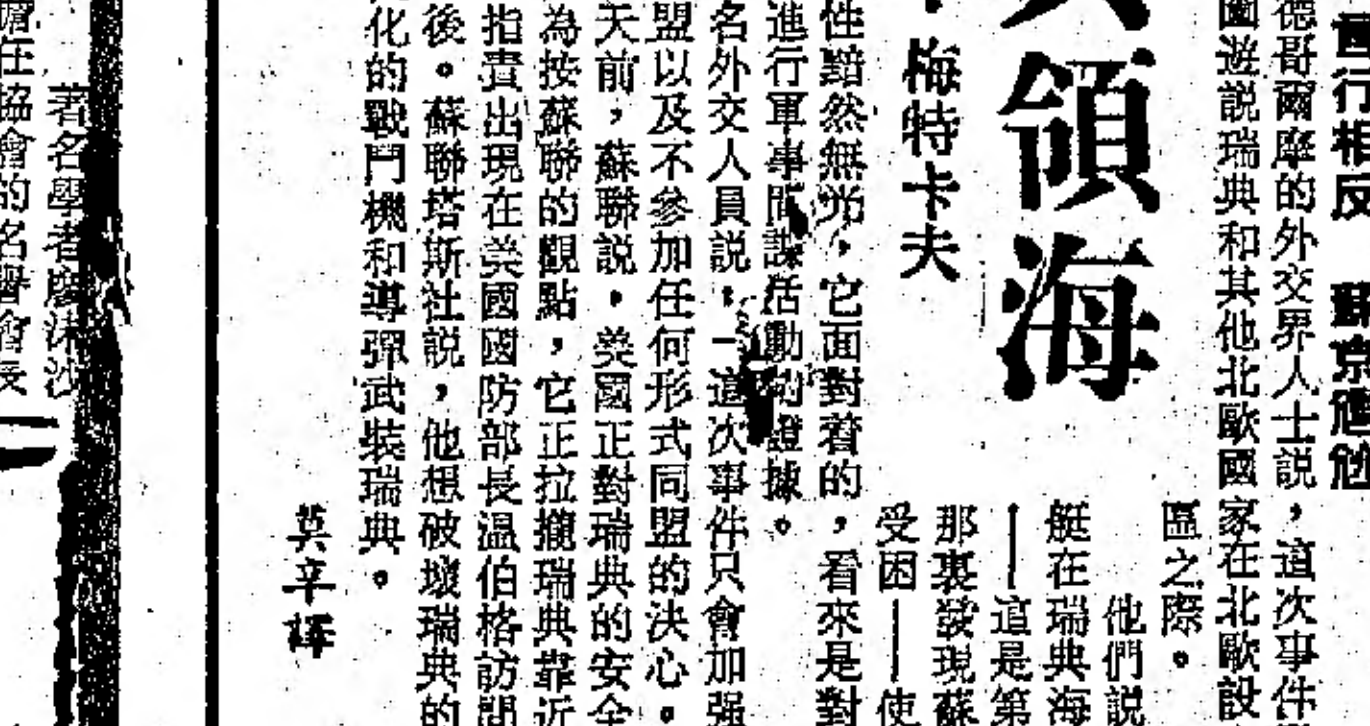 國行相反 蘇京尷尬
德哥爾摩的外交界人士説，這次事件
國遊説瑞典和其他北歐國家在北歐設
區之際。
他們説
艇在瑞典海
——這是第
那裏發現蘇
受困——使
領海
梅特卡夫
性黯然無光，它面對着的，看來是對
進行軍事間諜活動的證據。
名外交人員説，「這次事件只會加强
盟以及不參加任何形式同盟的決心。
天前，蘇聯説，美國正對瑞典的安全
為按蘇聯的觀點，它正拉攏瑞典靠近
指責出現在美國國防部長温伯格訪問
後。蘇聯塔斯社説，他想破壞瑞典的
化的戰鬥機和導彈武裝瑞典。
莫辛譯
著名學者廖沫沙
擔任協會的名譽會長